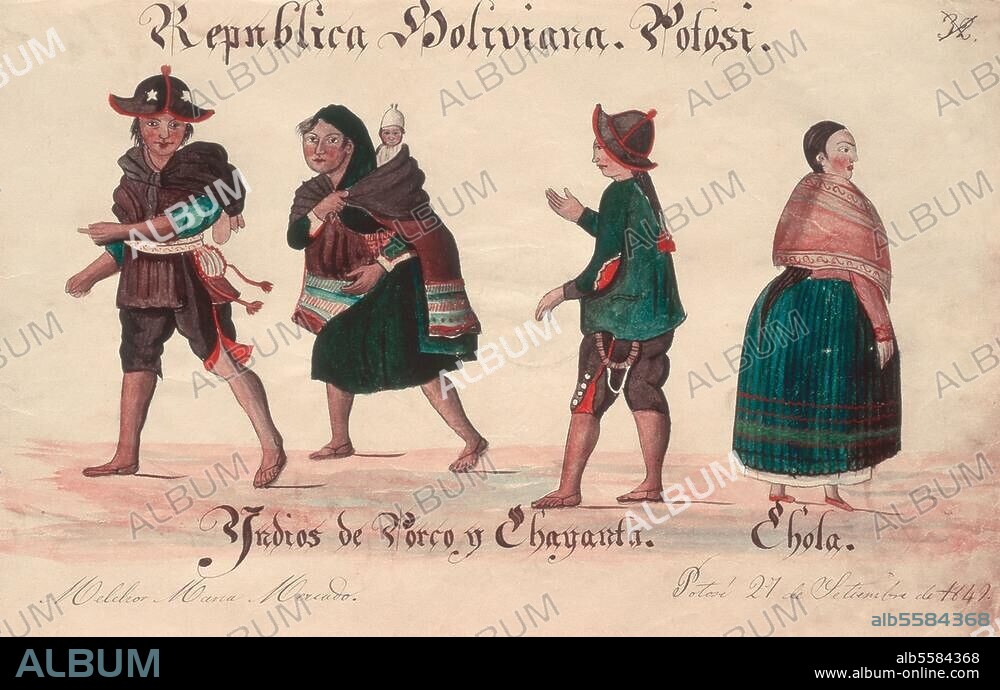 Republica Boliviana. Potosi.
32.
Yndios de Porco y Chayanta.
Chola.
Melchor Maria Mercado.
Potosí 27 de Setiembre de 1849.
ALBUM
alb5584368
alb5584368
www.album-online.com